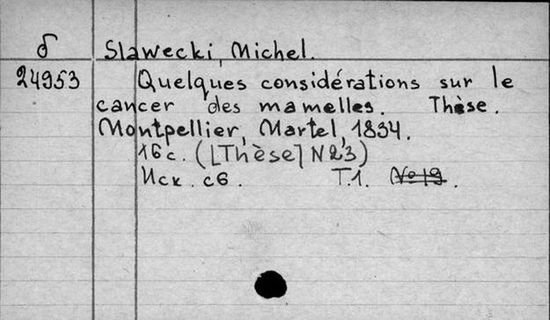 б Slawecki, Michel.
24953 Quelques considérations sur le
cancer des mamelles. Thèse.
Montpellier, Martel, 1834.
16 с. ([Thèse] N 23)
Иск. сб. Т.1. № 19.